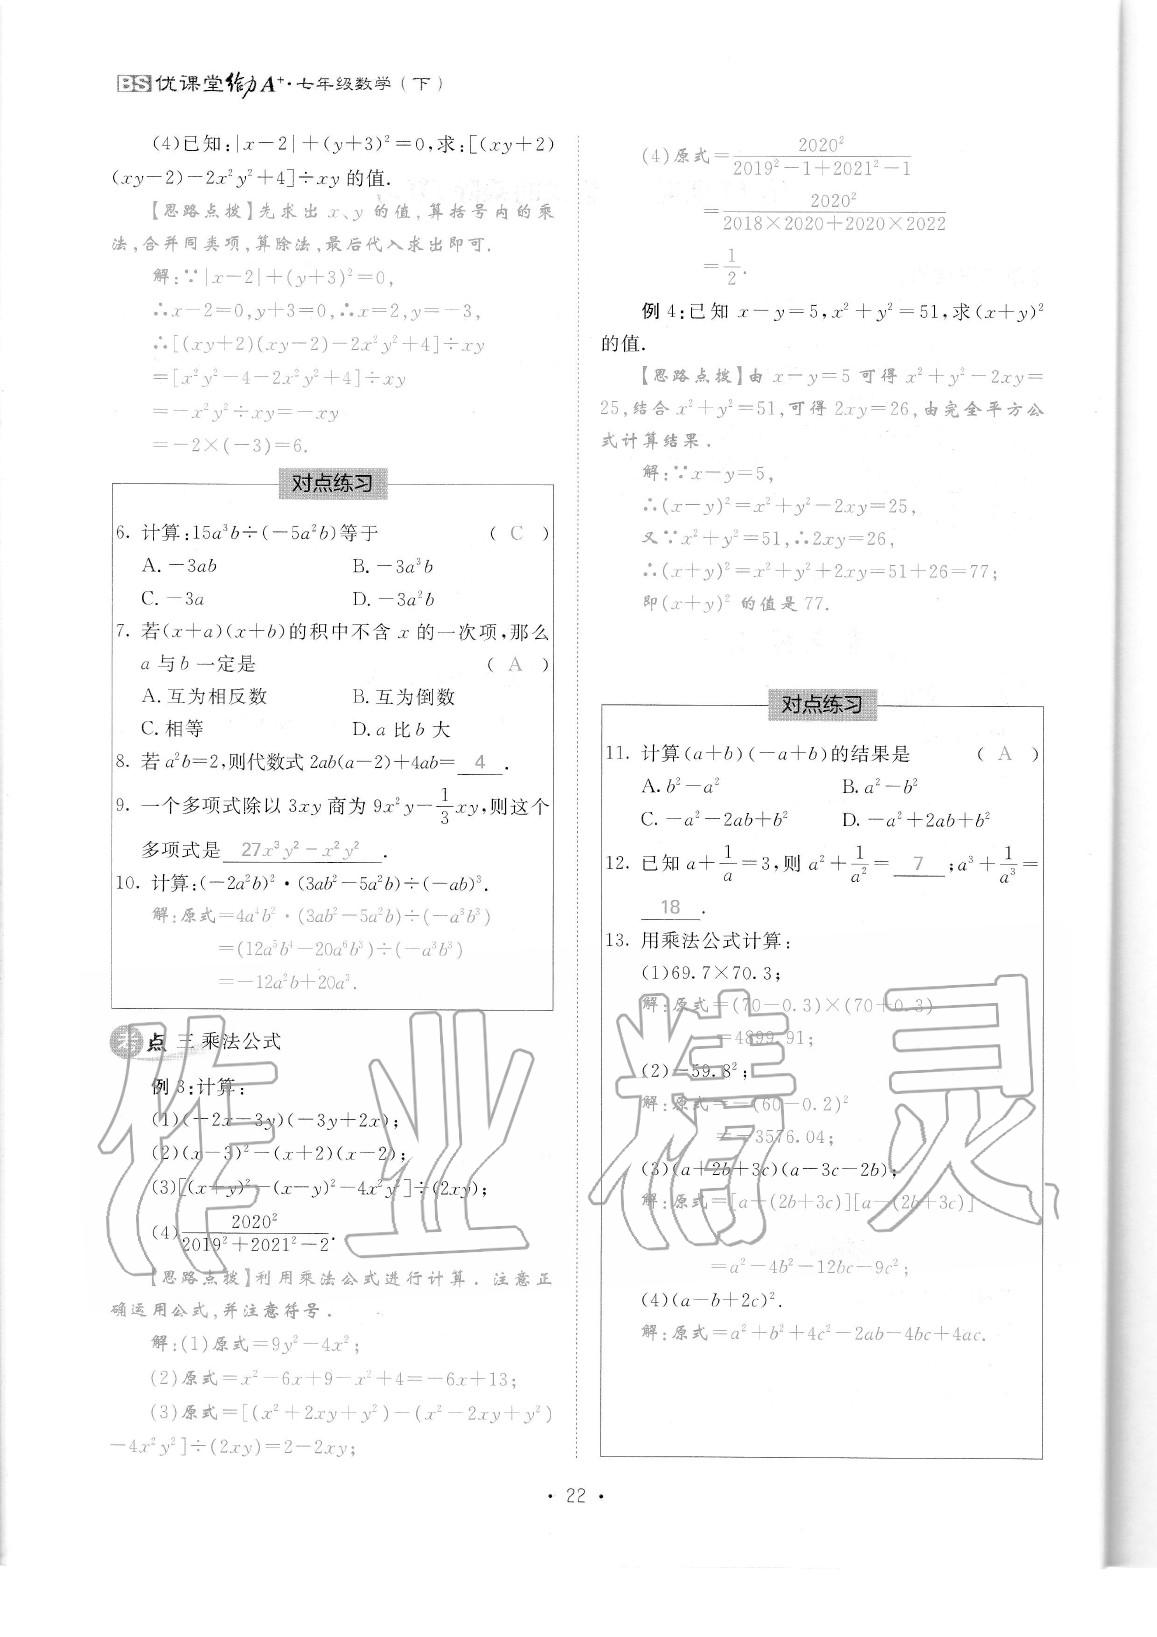 BS优课堂给力A⁺·七年级数学(下)
(4)已知:|x-2|+(y+3)²=0,求:[(xy+2)
(xy-2)-2x²y²+4]÷xy的值.
【思路点拨】先求出x、y的值,算括号内的乘
法,合并同类项,算除法,最后代入求出即可.
解:∵|x-2|+(y+3)²=0,
∴x-2=0,y+3=0,∴x=2,y=-3,
∴[(xy+2)(xy-2)-2x²y²+4]÷xy
=[x²y²-4-2x²y²+4]÷xy
=-x²y²÷xy=-xy
=-2×(-3)=6.
对点练习
6. 计算:15a³b÷(-5a²b)等于 ( C )
A. -3ab B. -3a³b
C. -3a D. -3a²b
7. 若(x+a)(x+b)的积中不含x的一次项,那么
a与b一定是 ( A )
A. 互为相反数 B. 互为倒数
C. 相等 D. a比b大
8. 若a²b=2,则代数式2ab(a-2)+4ab= 4 .
9. 一个多项式除以3xy商为9x²y-1/3xy,则这个
多项式是 27x³y²-x²y² .
10. 计算:(-2a²b)²·(3ab²-5a²b)÷(-ab)³.
解:原式=4a⁴b²·(3ab²-5a²b)÷(-a³b³)
=(12a⁵b⁴-20a⁶b³)÷(-a³b³)
=-12a²b+20a³.
考点三 乘法公式
例3:计算:
(1)(-2x-3y)(-3y+2x);
(2)(x-3)²-(x+2)(x-2);
(3)[(x+y)²-(x-y)²-4x²y²]÷(2xy);
(4)2020²/(2019²+2021²-2).
【思路点拨】利用乘法公式进行计算.注意正
确运用公式,并注意符号.
解:(1)原式=9y²-4x²;
(2)原式=x²-6x+9-x²+4=-6x+13;
(3)原式=[(x²+2xy+y²)-(x²-2xy+y²)
-4x²y²]÷(2xy)=2-2xy;
(4)原式=2020²/(2019²-1+2021²-1)
=2020²/(2018×2020+2020×2022)
=1/2.
例4:已知x-y=5,x²+y²=51,求(x+y)²
的值.
【思路点拨】由x-y=5可得x²+y²-2xy=
25,结合x²+y²=51,可得2xy=26,由完全平方公
式计算结果.
解:∵x-y=5,
∴(x-y)²=x²+y²-2xy=25,
又∵x²+y²=51,∴2xy=26,
∴(x+y)²=x²+y²+2xy=51+26=77;
即(x+y)²的值是77.
对点练习
11. 计算(a+b)(-a+b)的结果是 ( A )
A. b²-a² B. a²-b²
C. -a²-2ab+b² D. -a²+2ab+b²
12. 已知a+1/a=3,则a²+1/a²= 7 ;a³+1/a³=
18 .
13. 用乘法公式计算:
(1)69.7×70.3;
解:原式=(70-0.3)×(70+0.3)
=4899.91;
(2)-59.8²;
解:原式=-(60-0.2)²
=-3576.04;
(3)(a+2b+3c)(a-3c-2b);
解:原式=[a+(2b+3c)][a-(2b+3c)]
=a²-4b²-12bc-9c²;
(4)(a-b+2c)².
解:原式=a²+b²+4c²-2ab-4bc+4ac.
· 22 ·
作业精灵